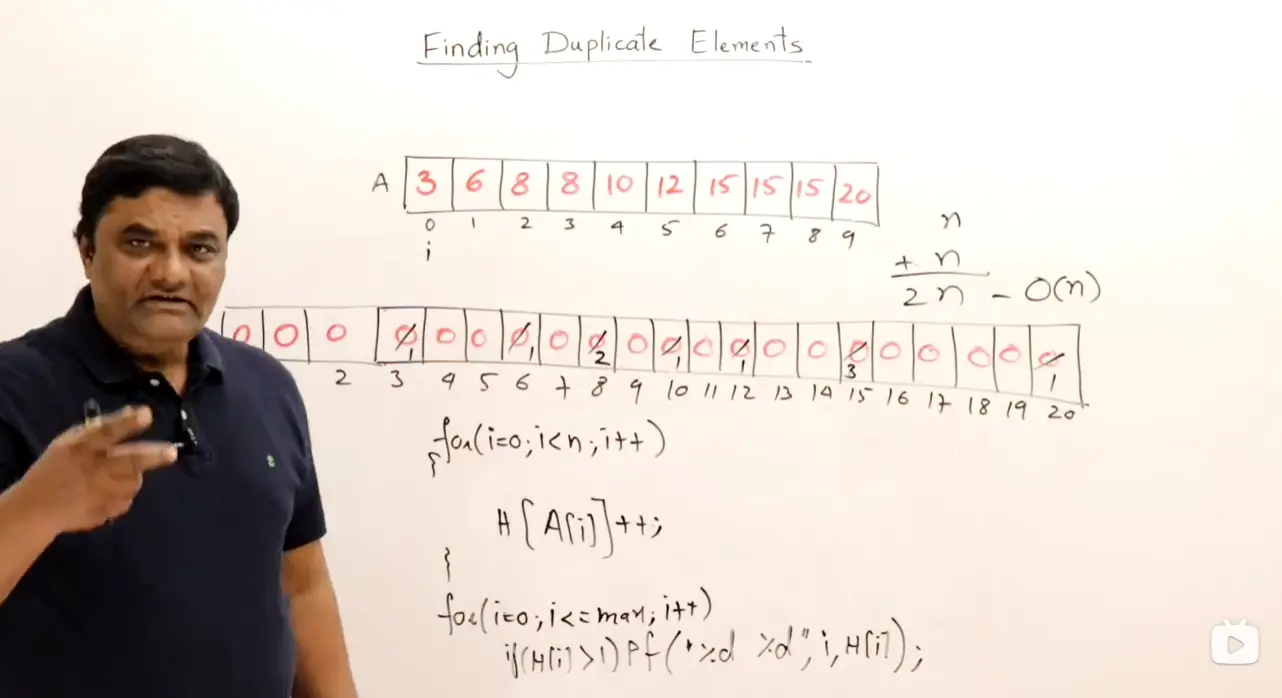 Finding Duplicate Elements
A 3 6 8 8 10 12 15 15 15 20
0 1 2 3 4 5 6 7 8 9
i
n
+ n
2n - O(n)
0 0 0 0 0 0 0 0 0 0 0 0 0 0 0 0 0 0 0 0 0
1 1 2 1 1 3 1
2 3 4 5 6 7 8 9 10 11 12 13 14 15 16 17 18 19 20
for(i=0;i<n;i++)
{
H[A[i]]++;
}
for(i=0;i<=max;i++)
if(H[i]>1)Pf("%d %d",i,H[i]);